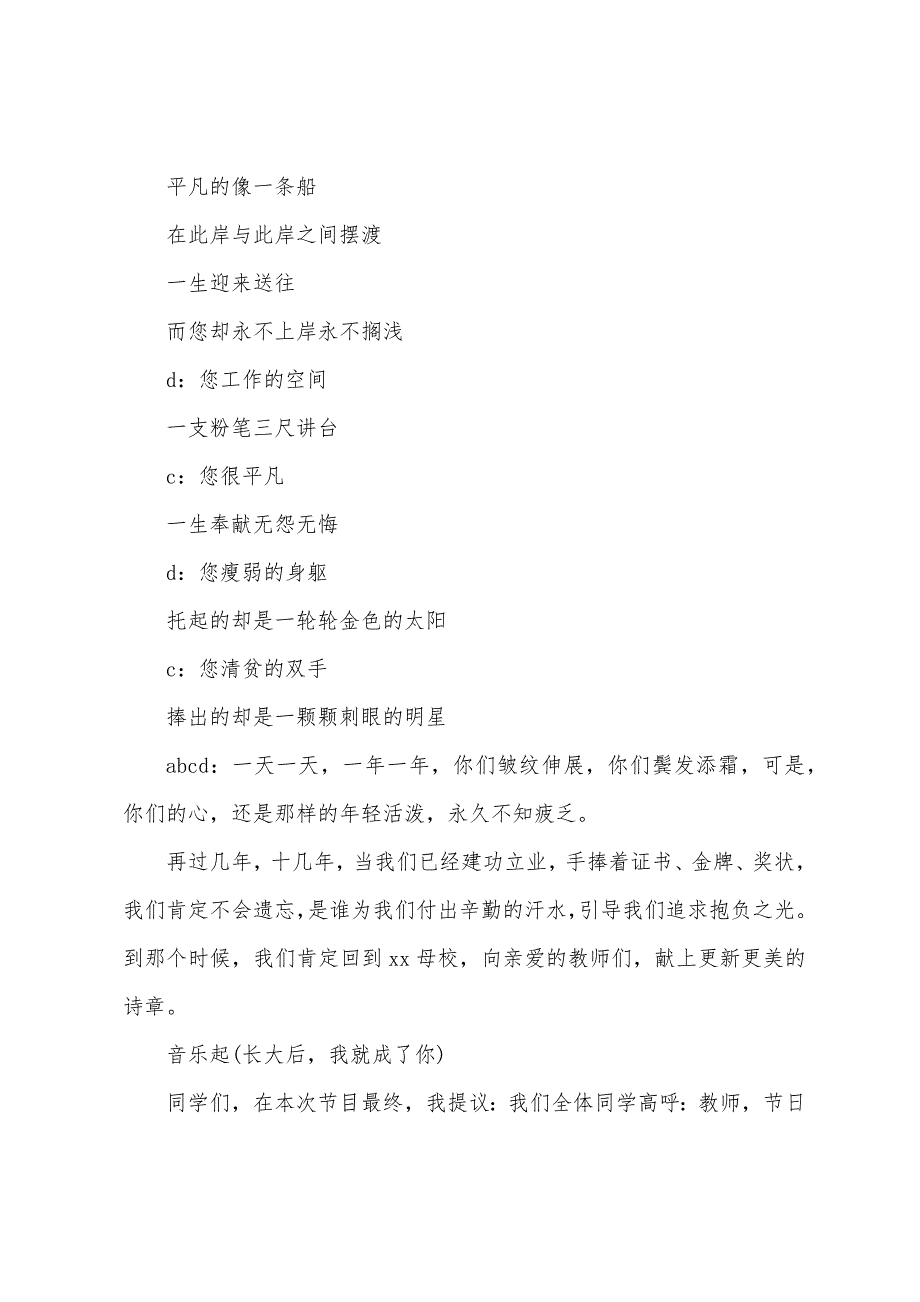 平凡的像一条船
在此岸与此岸之间摆渡
一生迎来送往
而您却永不上岸永不搁浅
d：您工作的空间
一支粉笔三尺讲台
c：您很平凡
一生奉献无怨无悔
d：您瘦弱的身躯
托起的却是一轮轮金色的太阳
c：您清贫的双手
捧出的却是一颗颗刺眼的明星
abcd：一天一天，一年一年，你们皱纹伸展，你们鬓发添霜，可是，
你们的心，还是那样的年轻活泼，永久不知疲乏。
再过几年，十几年，当我们已经建功立业，手捧着证书、金牌、奖状，
我们肯定不会遗忘，是谁为我们付出辛勤的汗水，引导我们追求抱负之光。
到那个时候，我们肯定回到 xx 母校，向亲爱的教师们，献上更新更美的
诗章。
音乐起(长大后，我就成了你)
同学们，在本次节目最终，我提议：我们全体同学高呼：教师，节日